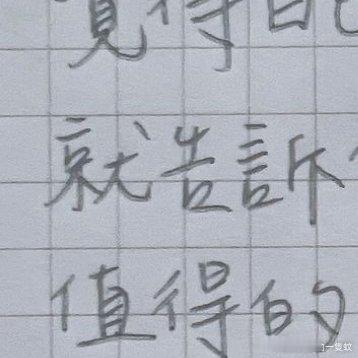 覺得的
就告訴
值得的
]一隻蚊